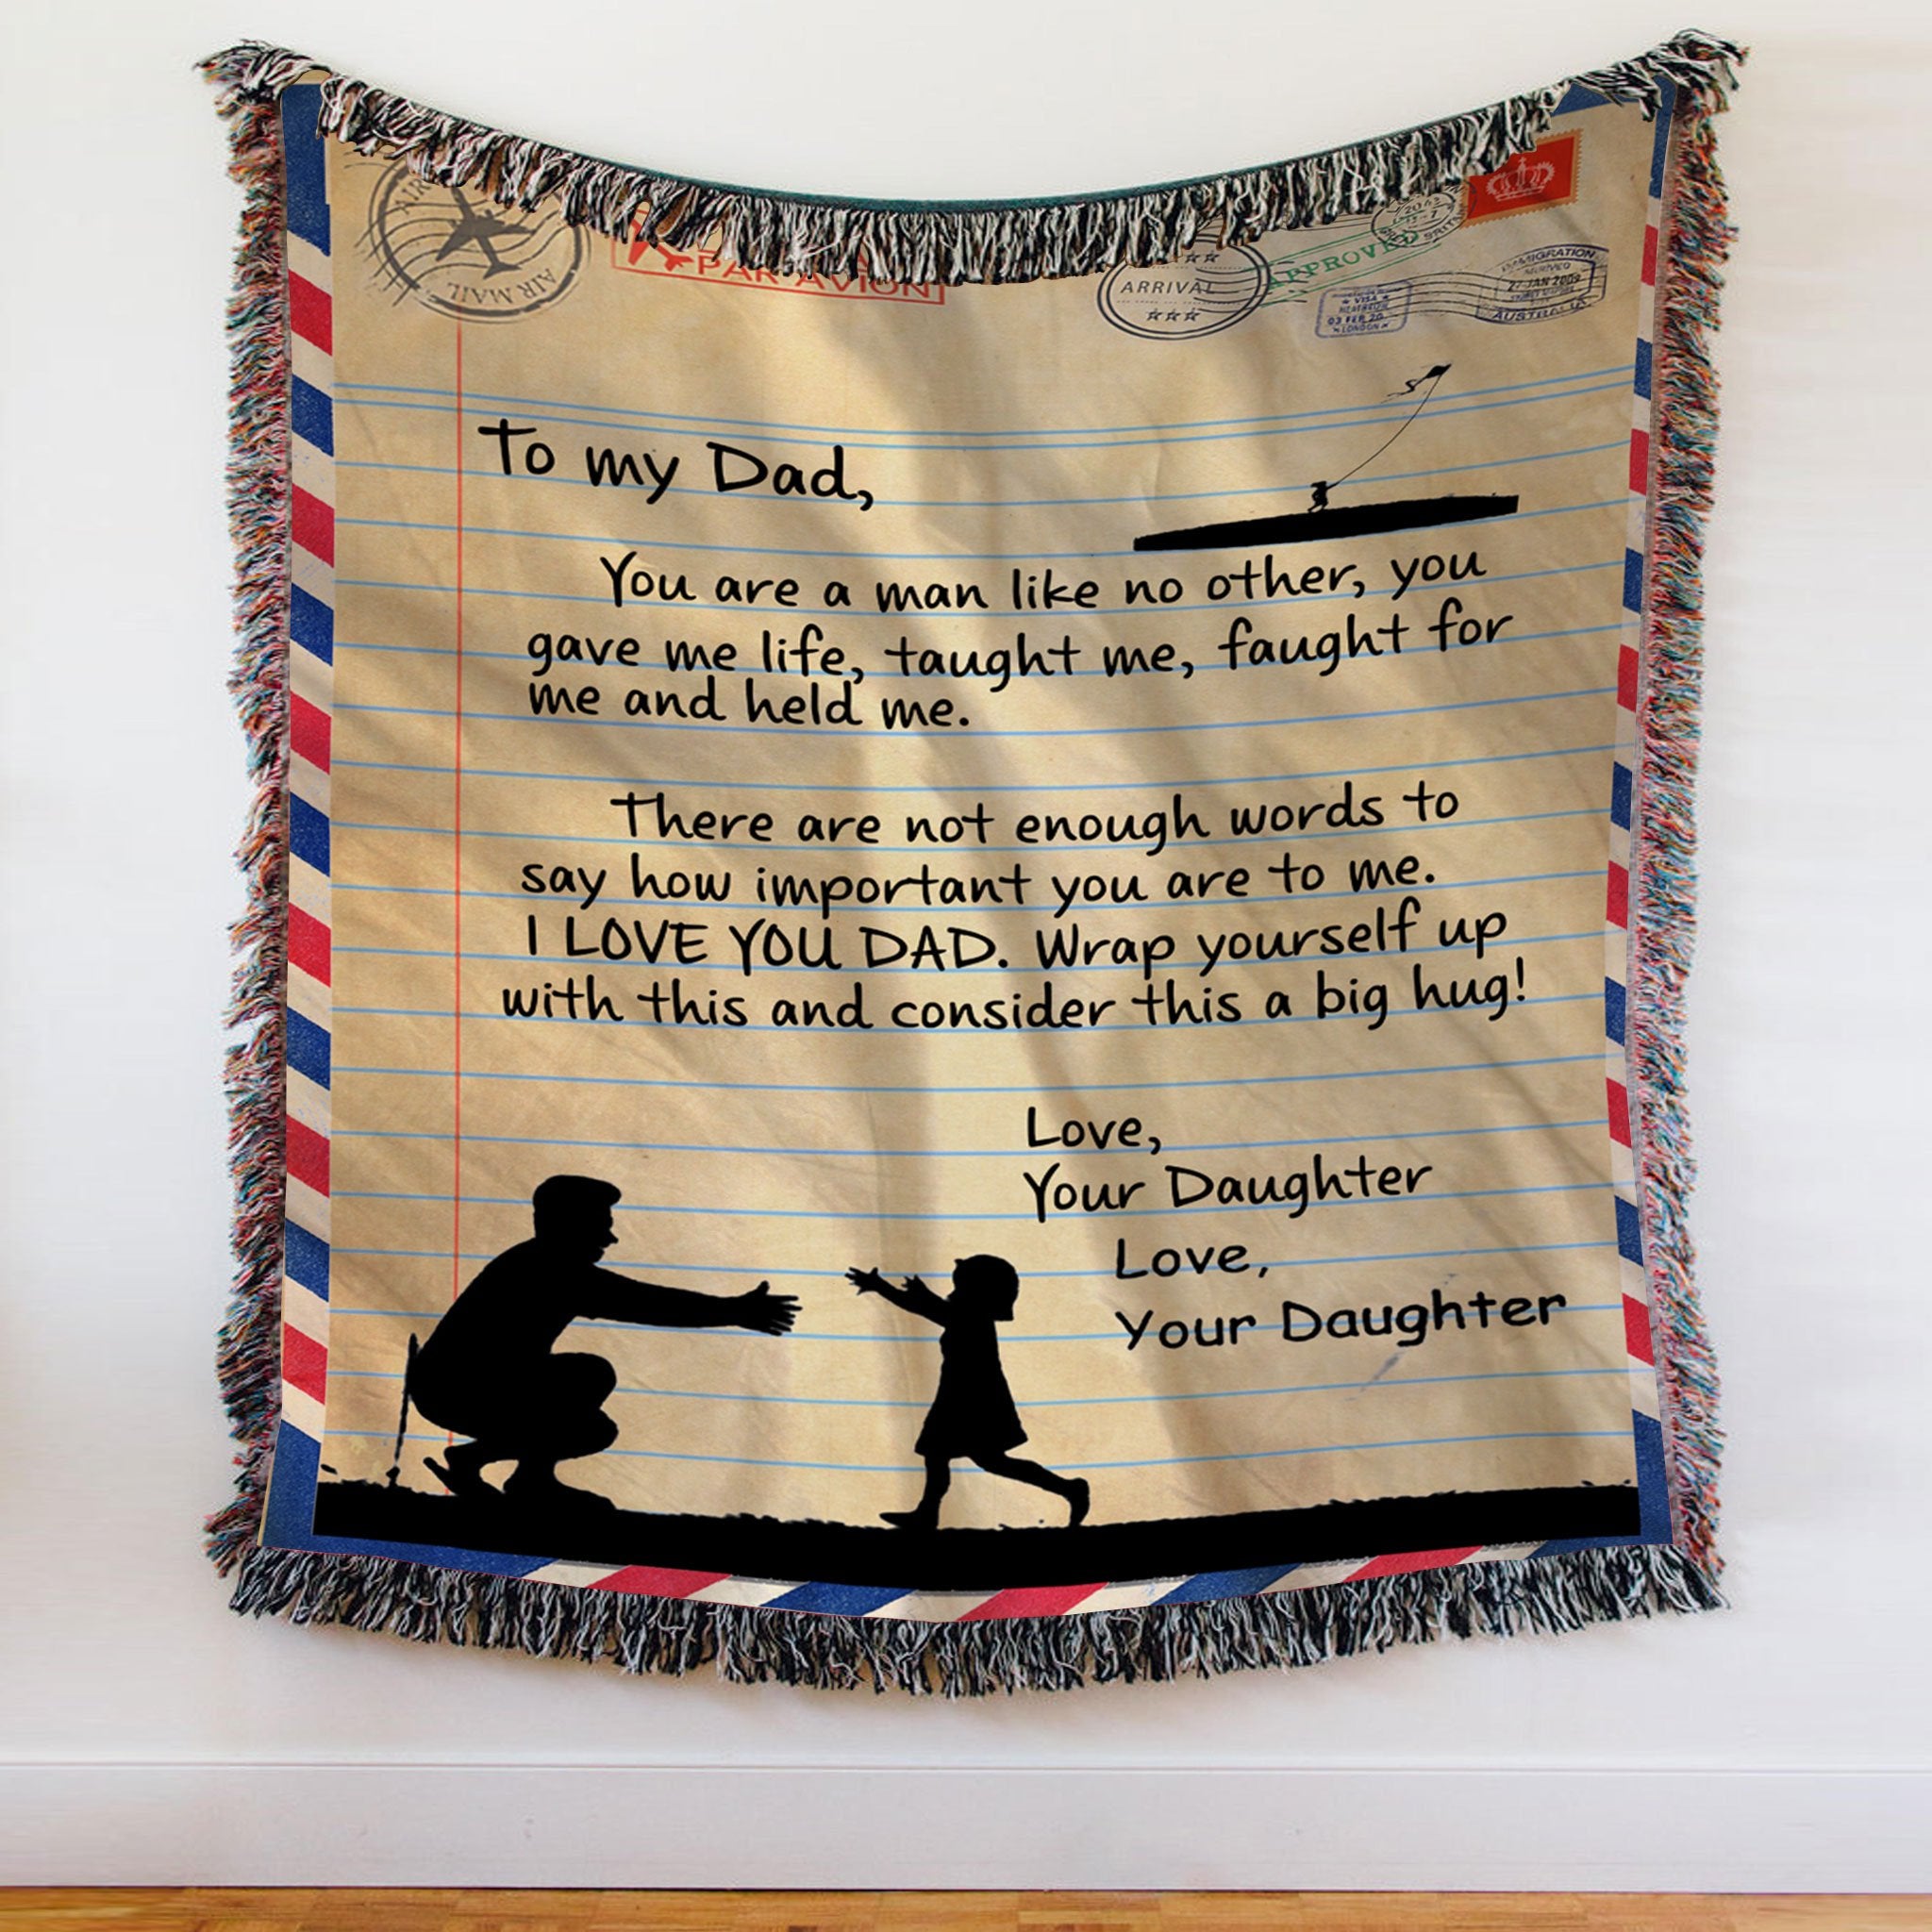 AIR MAIL
PAR AVION
ARRIVAL
APPROVED
IMMIGRATION
ARRIVED
27 JAN 2009
AUSTRALIA
VISA
HEATHROW
03 FEB 20
LONDON
To my Dad,
You are a man like no other, you
gave me life, taught me, faught for
me and held me.
There are not enough words to
say how important you are to me.
I LOVE YOU DAD. Wrap yourself up
with this and consider this a big hug!
Love,
Your Daughter
Love,
Your Daughter